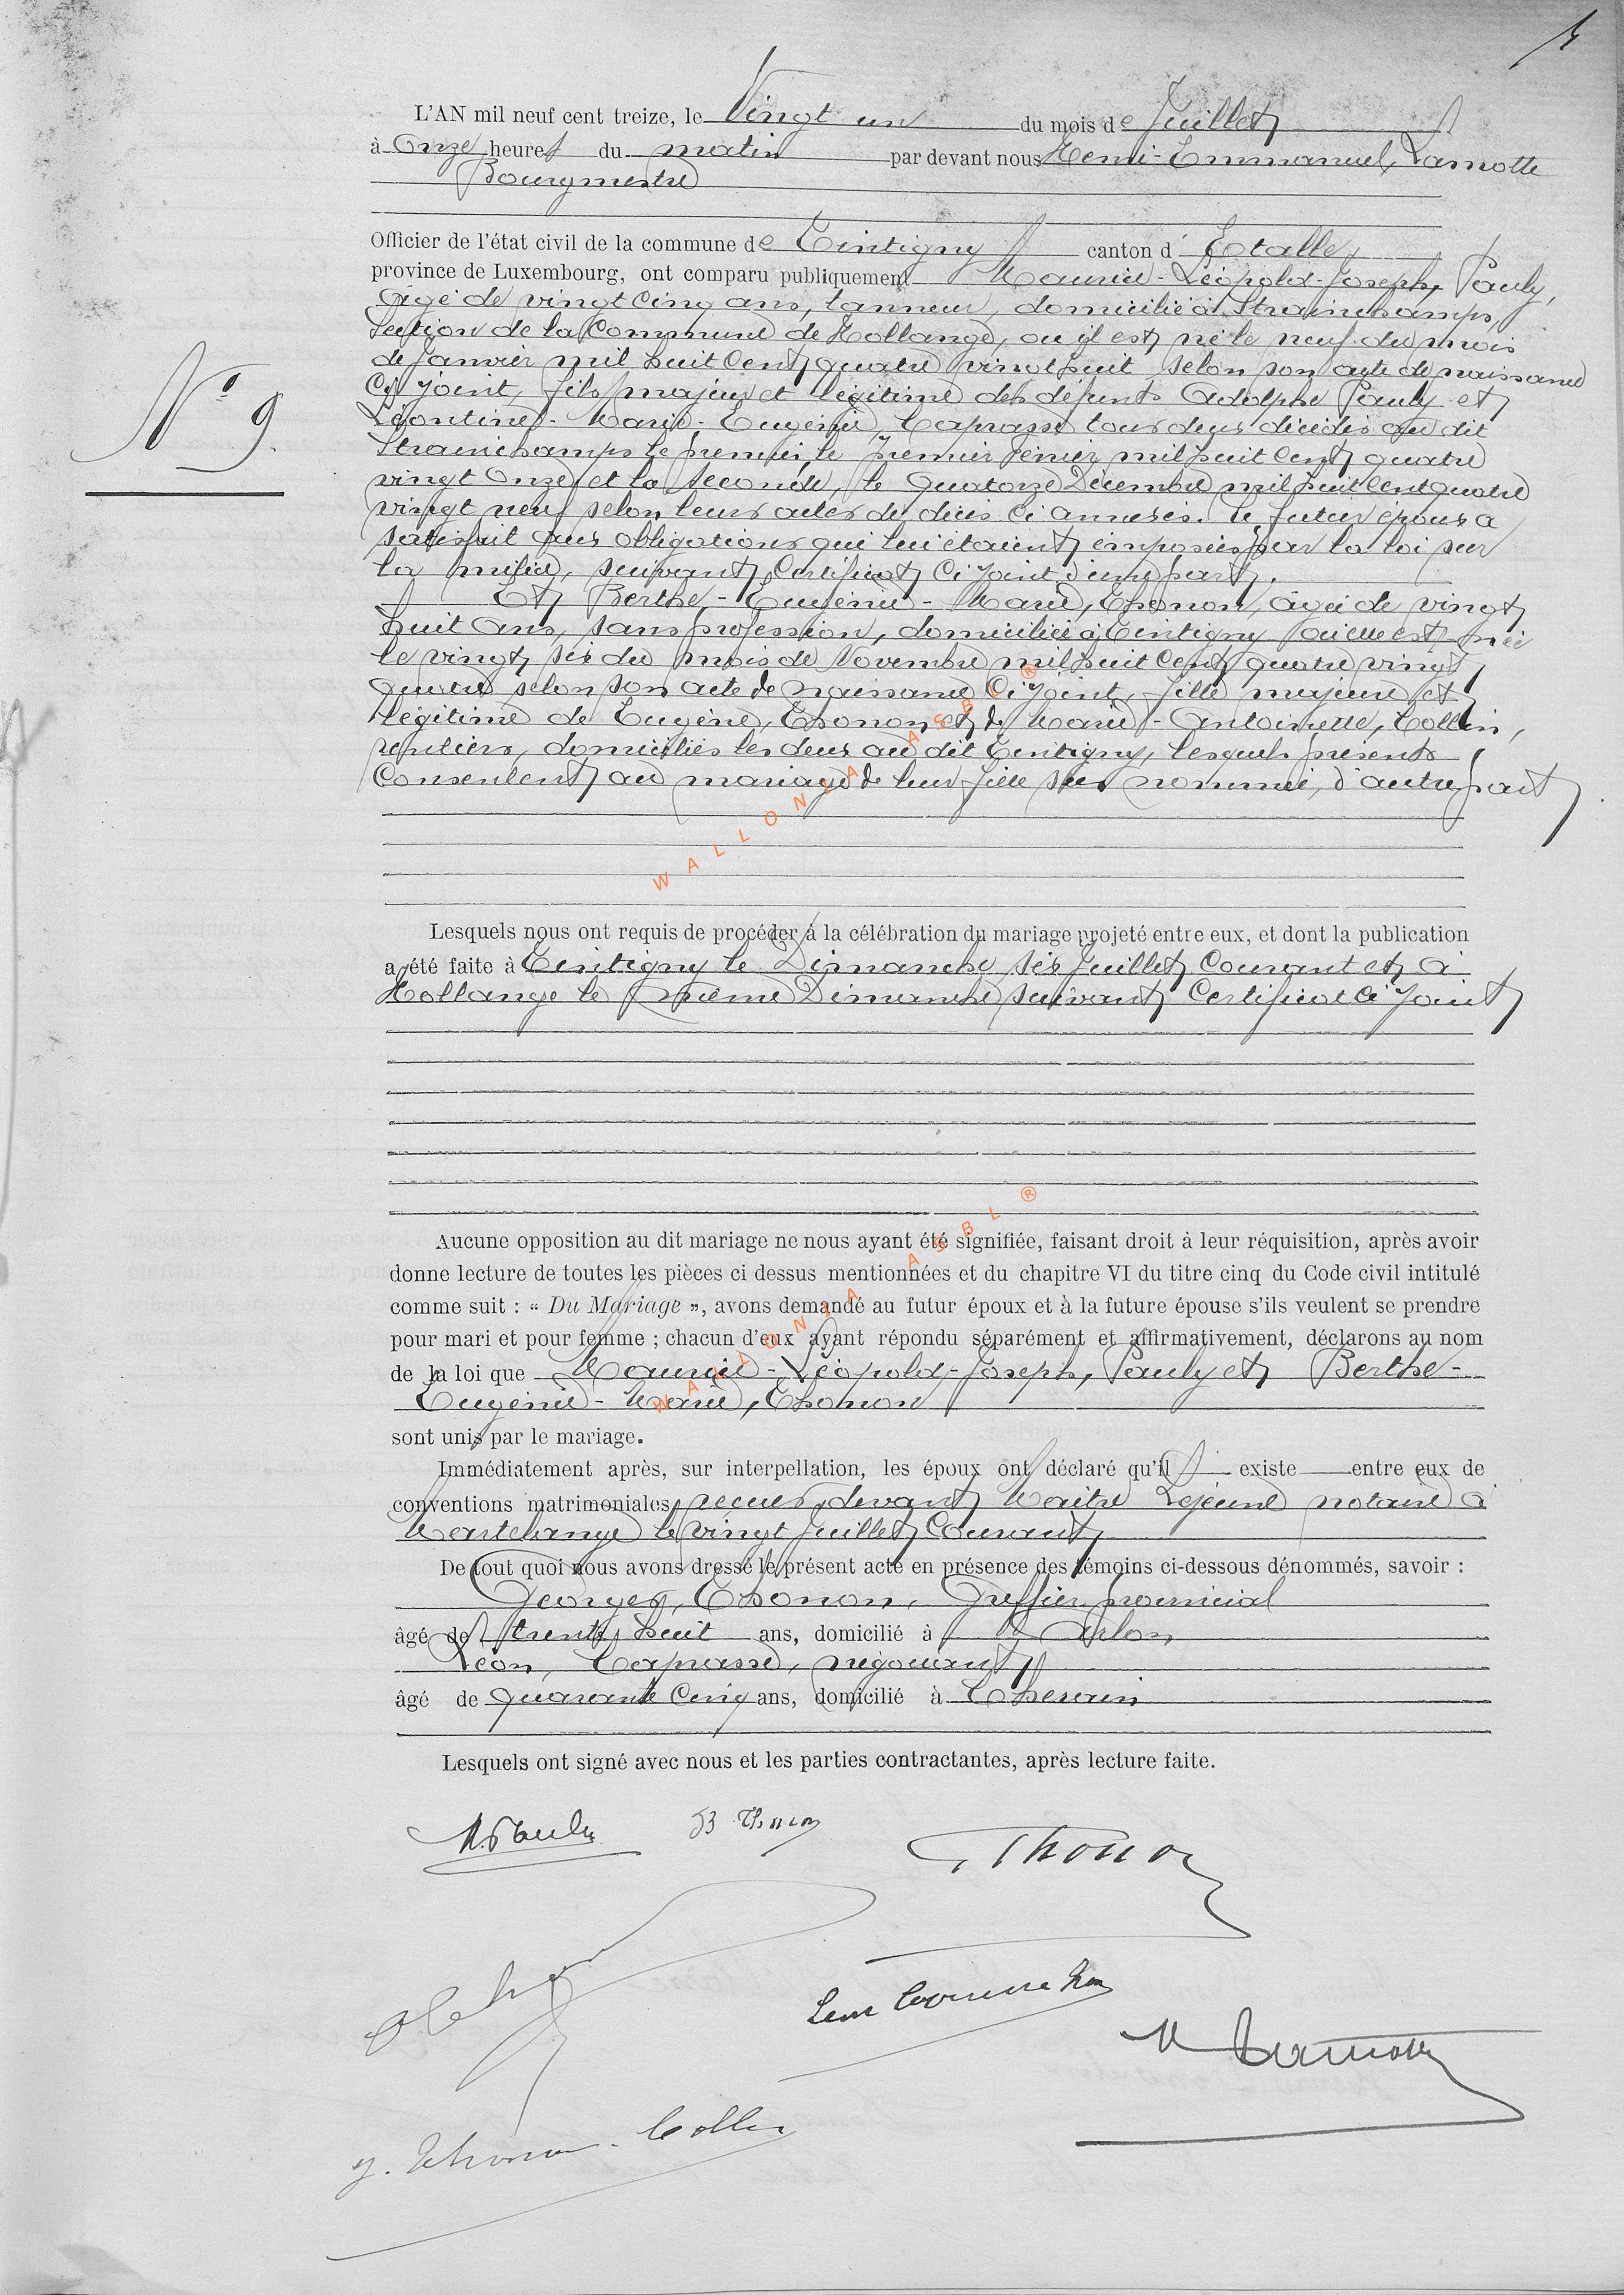 L'AN mil neuf cent treize, le Vingt un du mois de Juillet
à Onze heures du matin par devant nous Henri-Emmanuel, Lamotte
Bourgmestre
Officier de l'état civil de la commune de Tintigny canton d' Etalle
province de Luxembourg, ont comparu publiquement Maurice-Léopold-Joseph, Pauly,
âgé de vingt cinq ans, tanneur, domicilié à Strainchamps,
Section de la Commune de Hollange, où il est né le neuf du mois
de Janvier mil huit cent quatre vingt huit selon son acte de naissance
Ci joint, fils majeur et légitime des défunts Adolphe Pauly et
Léontine-Marie-Eugénie, Caprasse tous deux décédés au dit
Strainchamps le premier, le premier Février mil huit cent quatre
vingt onze et la seconde, le quatorze Décembre mil huit cent quatre
vingt neuf selon leurs actes de décès ci annexés. Le futur époux a
satisfait aux obligations qui lui étaient imposées par la loi sur
la milice, suivant certificat ci joint d'une part.
N° 9
Et Berthe-Eugénie-Marie, Thonon, âgée de vingt
huit ans, sans profession, domiciliée à Tintigny où elle est née
le vingt six du mois de Novembre mil huit cent quatre vingt
quatre selon son acte de naissance ci joint, fille majeure et
légitime de Eugène, Thonon et de Marie-Antoinette, Collin,
rentiers, domiciliés les deux au dit Tintigny, lesquels présents
Consentent au mariage de leur fille sus nommée, d'autre part
WALLONIA ASBL ®
Lesquels nous ont requis de procéder à la célébration du mariage projeté entre eux, et dont la publication
a été faite à Tintigny le Dimanche six Juillet Courant et à
Hollange le même Dimanche suivant Certificat ci joint
Aucune opposition au dit mariage ne nous ayant été signifiée, faisant droit à leur réquisition, après avoir
donne lecture de toutes les pièces ci dessus mentionnées et du chapitre VI du titre cinq du Code civil intitulé
comme suit : « Du Mariage », avons demandé au futur époux et à la future épouse s'ils veulent se prendre
pour mari et pour femme ; chacun d'eux ayant répondu séparément et affirmativement, déclarons au nom
de la loi que Maurice-Léopold-Joseph, Pauly et Berthe-
Eugénie-Marie, Thonon
WALLONIA ASBL ®
sont unis par le mariage.
Immédiatement après, sur interpellation, les époux ont déclaré qu'il existe entre eux de
conventions matrimoniales, reçues devant Maître Lejeune notaire à
Martelange le vingt Juillet Courant
De tout quoi nous avons dressé le présent acte en présence des témoins ci-dessous dénommés, savoir :
Georges, Thonon, Greffier provincial
âgé de trente huit ans, domicilié à Arlon
Léon, Caprasse, négociant
âgé de quarante cinq ans, domicilié à Cherain
Lesquels ont signé avec nous et les parties contractantes, après lecture faite.
M. Pauly B Thonon
G Thonon
H Lamotte
Thonon-Collin